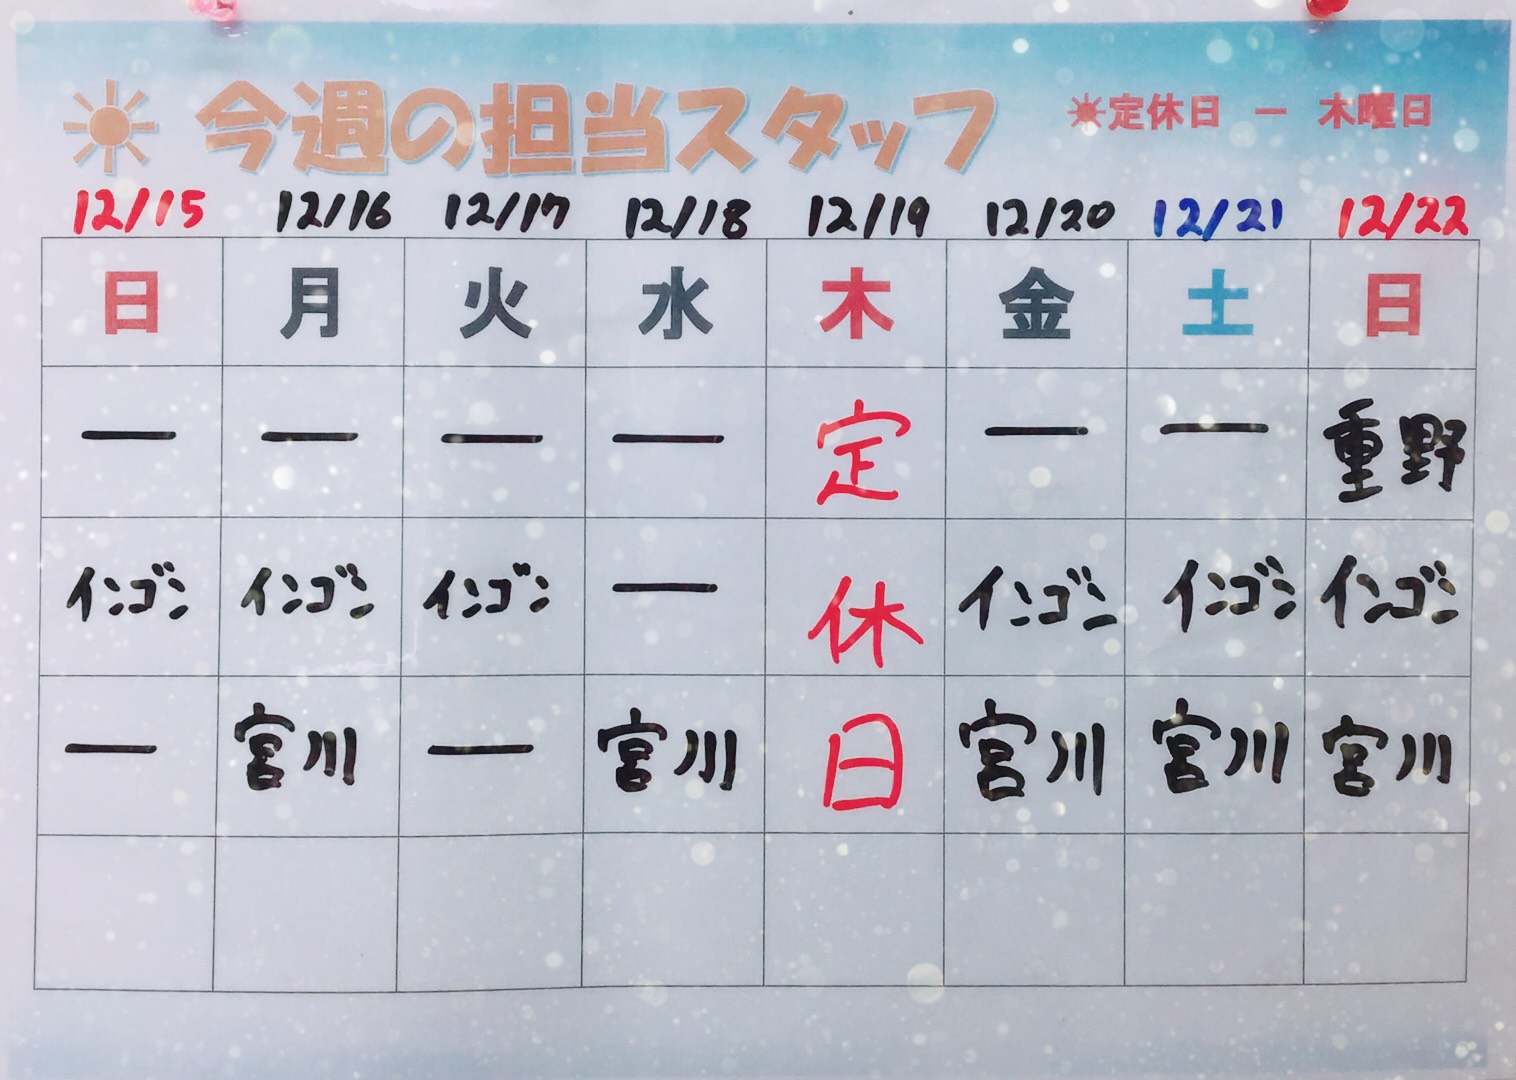 ☀今週の担当スタッフ ☀定休日 ー 木曜日
12/15 12/16 12/17 12/18 12/19 12/20 12/21 12/22
日 月 火 水 木 金 土 日
ー ー ー ー 定 ー ー 重野
インゴン インゴン インゴン ー 休 インゴン インゴン インゴン
ー 宮川 ー 宮川 日 宮川 宮川 宮川